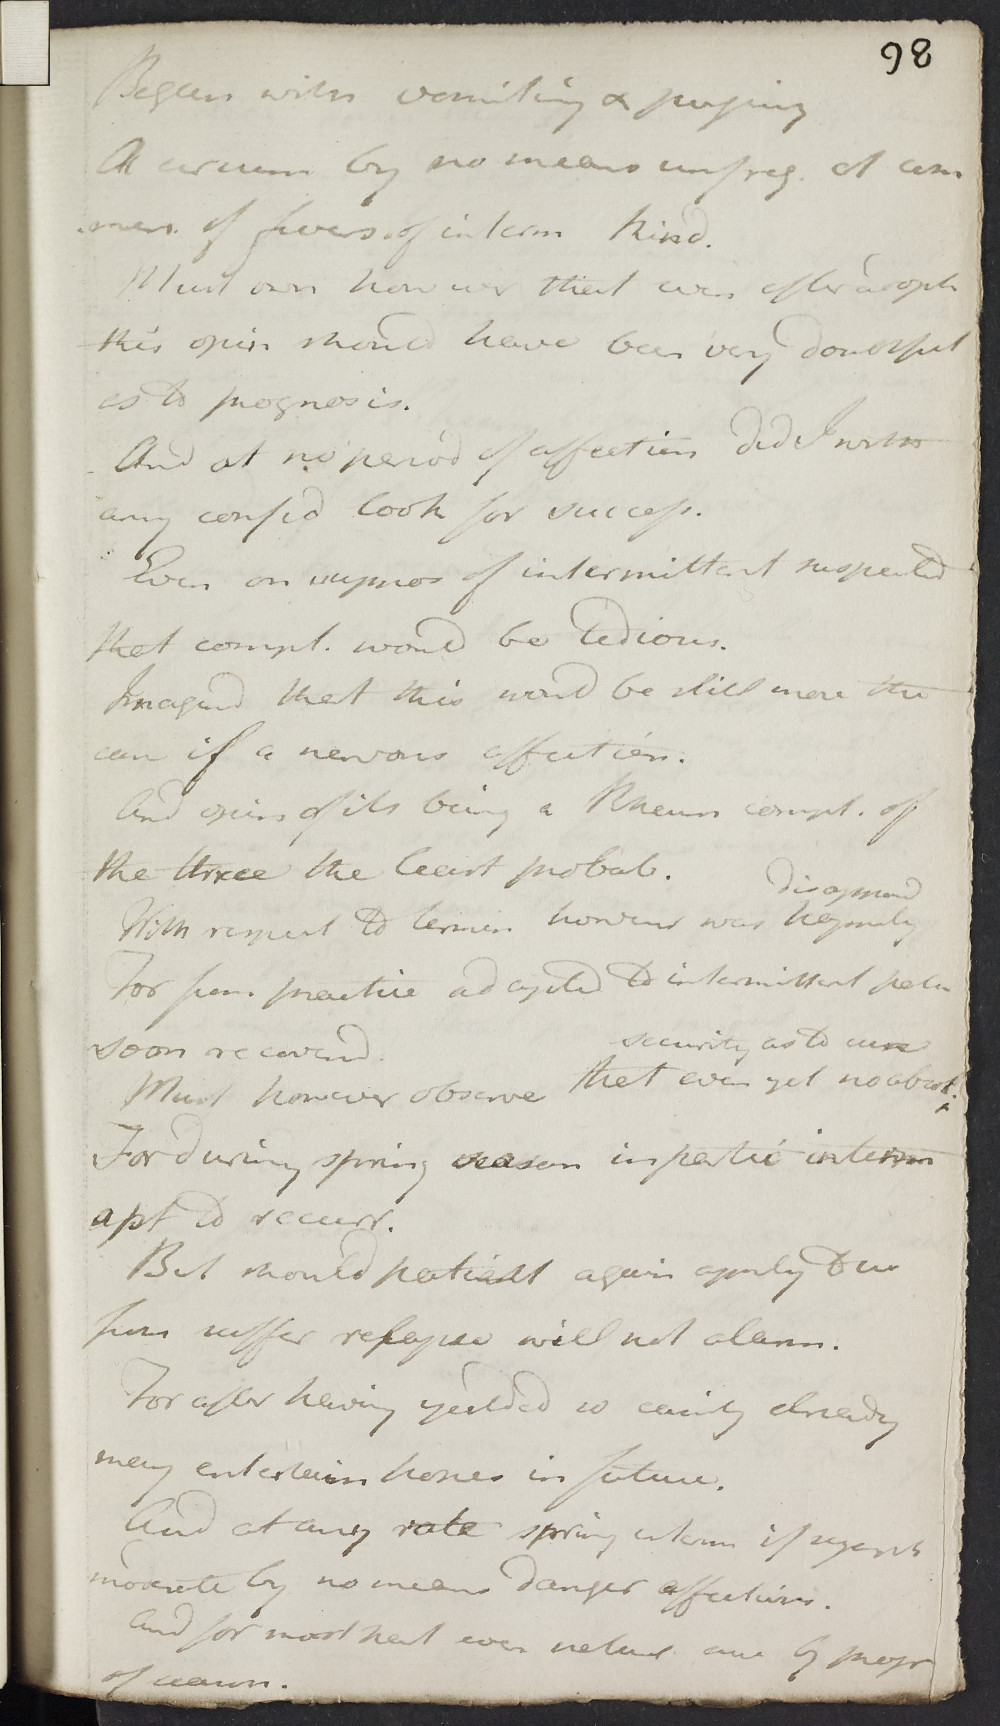 98
Began with vomiting & purging
A circum by no means unfreq. at com
mens. of fevers of interm kind.
Must own however that even after adopt
this opin should have been very doubtful
as to prognosis.
And at no period of affection did I with
any confid look for success.
Even on suppos of intermittent suspected
that compl. would be tedious.
Imagind that this would be still more the
case if a nervous affection.
And opin of its being a Rheum compl. of
the three the least probab.
disappoind
With respect to termin however was happily
For from practice adapted to intermittent
soon recoverd.
security as to cure
Must however observe that even yet no absol.
For during spring season in partic interm
apt to recurr.
But should patient again apply to us
from suffer relapse will not alarm.
For after having yielded so easily already
may entertain hopes in future.
And at any rate spring interm if
moderate by no means danger affections.
And for most part even natur cure by progr
of season.